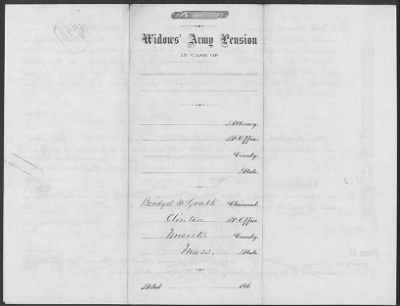 Widows' Army Pension
IN CASE OF
Attorney.
P. Office.
County.
State.
Bridget McGrath Claimant.
Clinton P. Office.
Worcester County.
Mass. State.
Filed 186